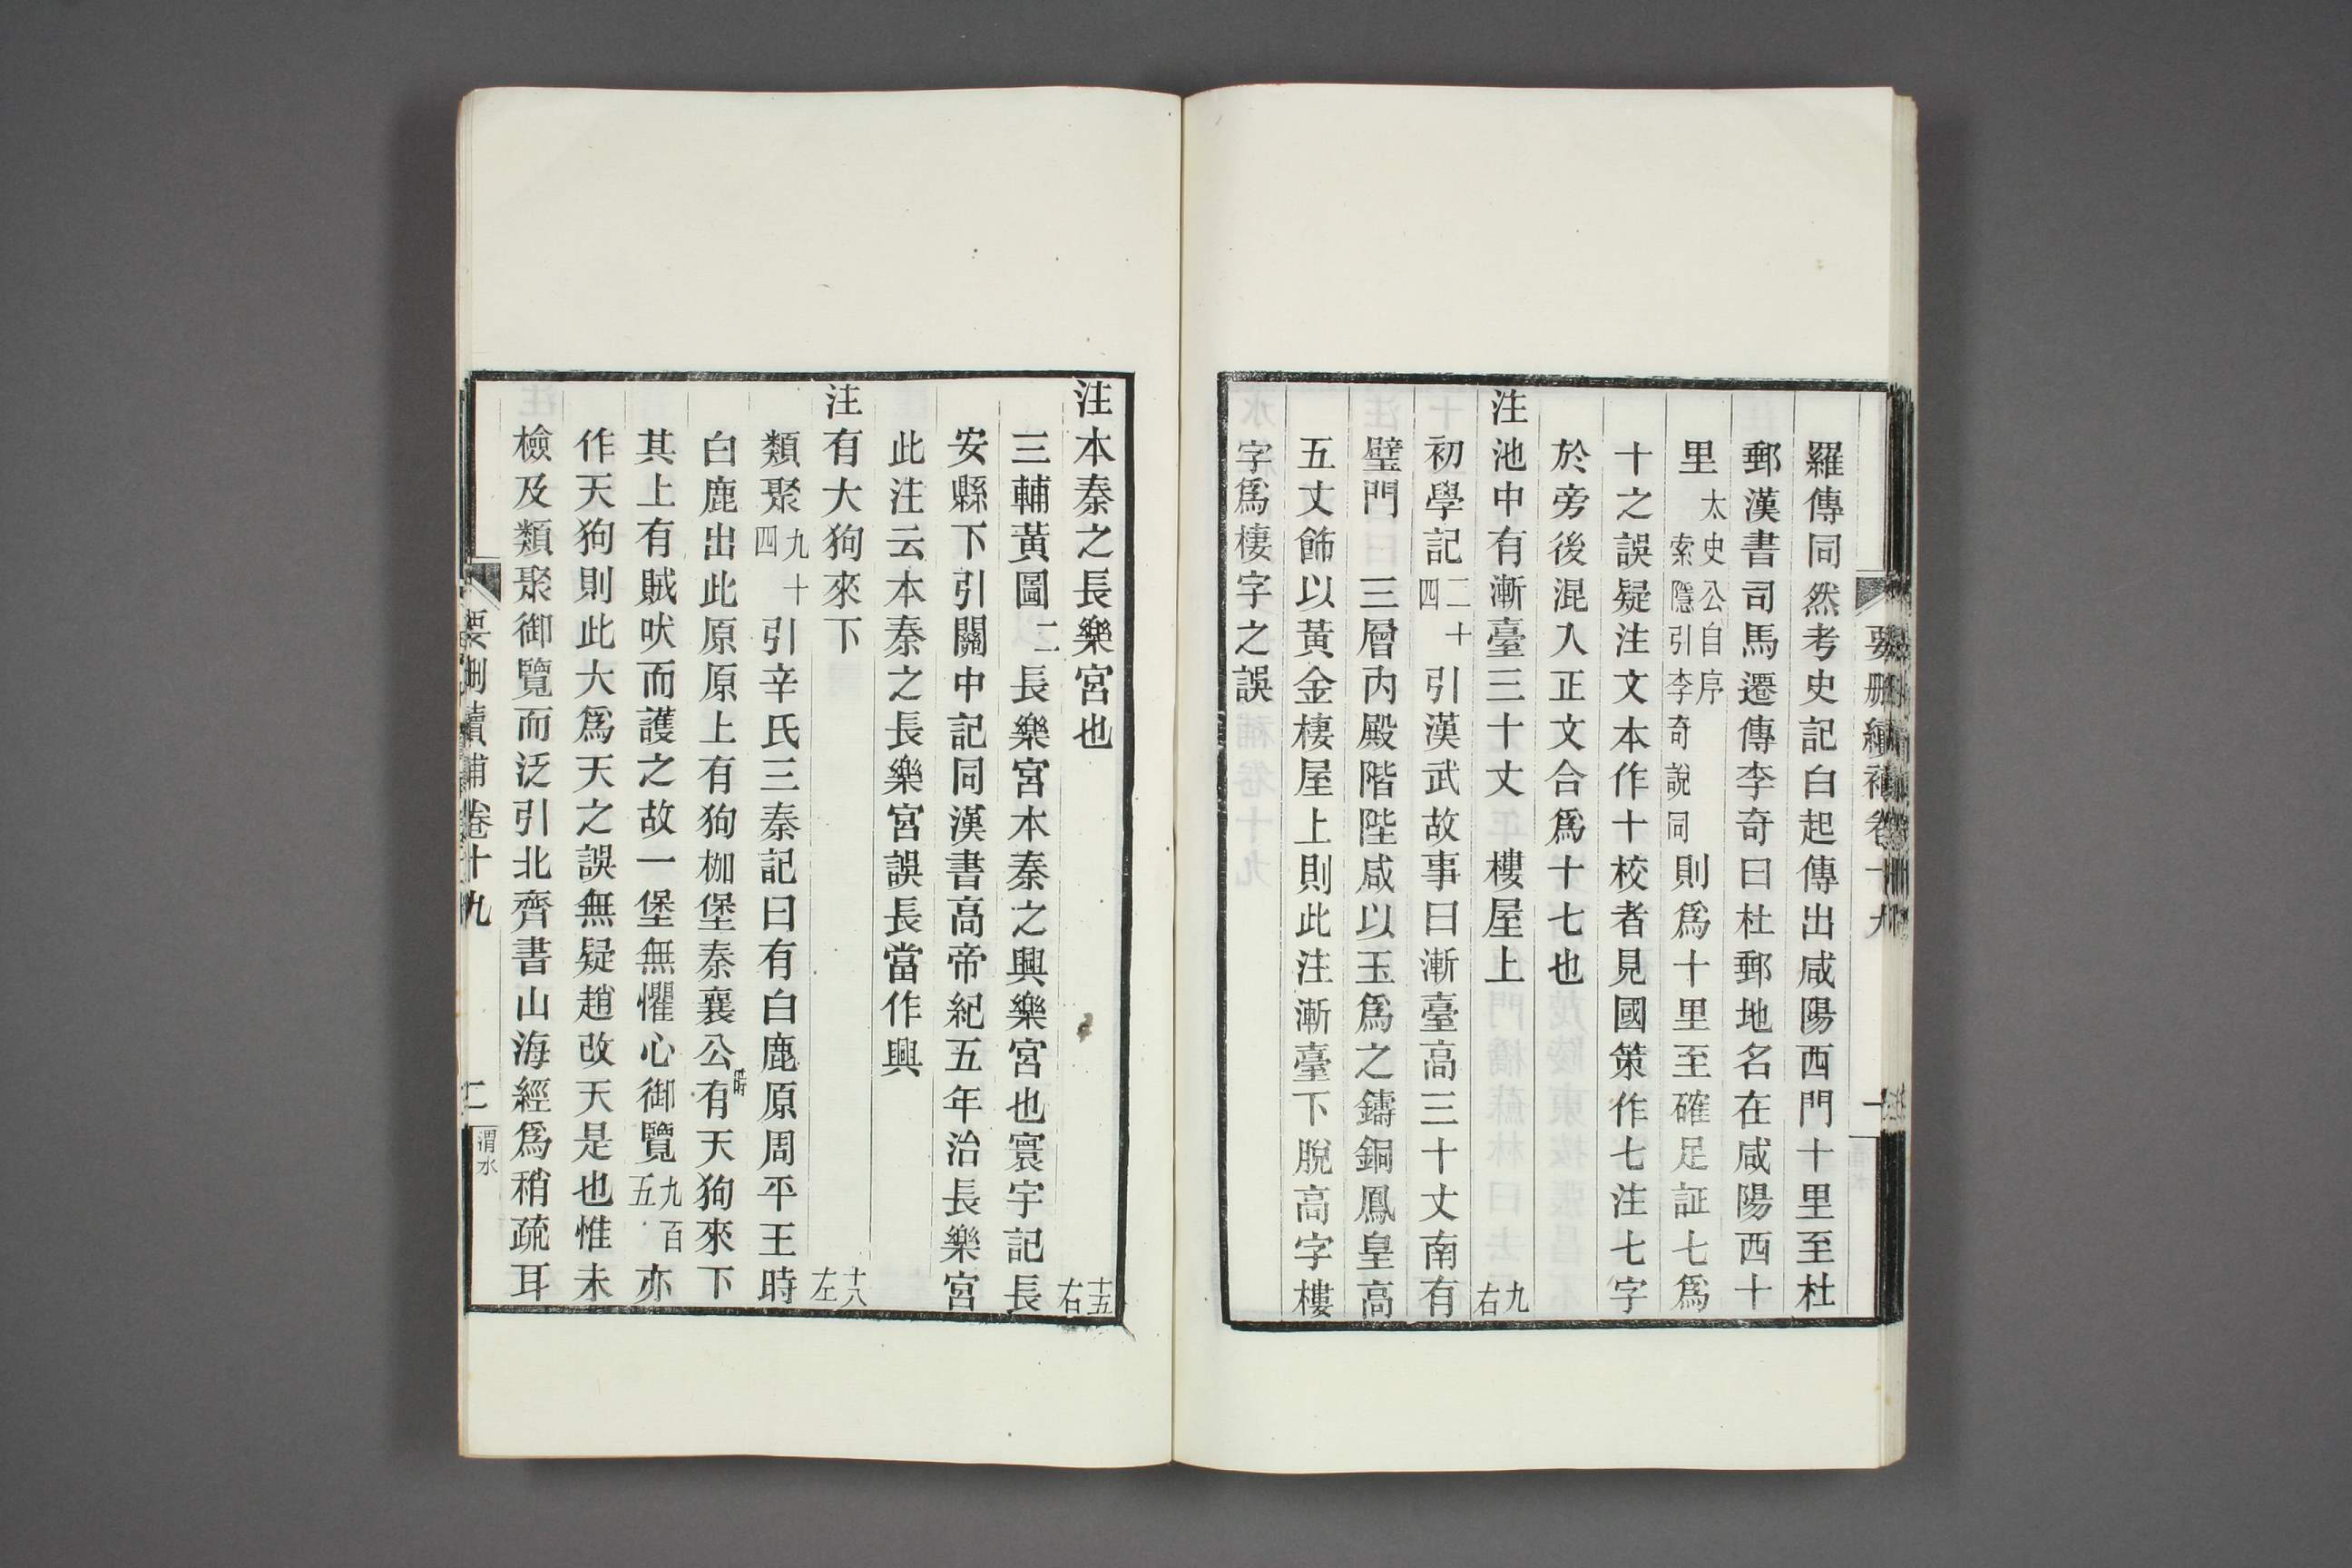 羅傳同然考史記白起傳出咸陽西門十里至杜
郵漢書司馬遷傳李奇曰杜郵地名在咸陽西十
里太史公自序索隱引李奇說同則爲十里至確足証七爲
十之誤疑注文本作十校者見國策作七注七字
於旁後混入正文合爲十七也
注池中有漸臺三十丈 樓屋上 九右
初學記二十四引漢武故事曰漸臺高三十丈南有
璧門 三層內殿階陛咸以玉爲之鑄銅鳳皇高
五丈飾以黃金棲屋上則此注漸臺下脫高字樓
字爲棲字之誤
注本秦之長樂宮也 十五右
三輔黃圖二長樂宮本秦之興樂宮也寰宇記長
安縣下引關中記同漢書高帝紀五年治長樂宮
此注云本秦之長樂宮誤長當作興
注有大狗來下 十八左
類聚九十四引辛氏三秦記曰有白鹿原周平王時
白鹿出此原原上有狗枷堡秦襄公時有天狗來下
其上有賊吠而護之故一堡無懼心御覽九百五亦
作天狗則此大爲天之誤無疑趙改天是也惟未
檢及類聚御覽而泛引北齊書山海經爲稍疏耳
要刪續補卷十九 二 渭水